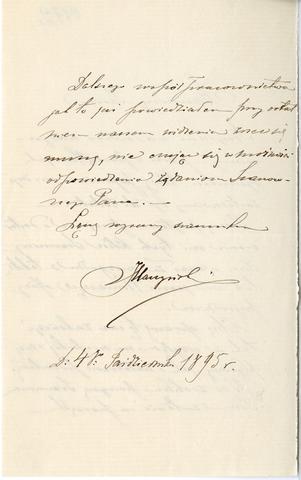 Dalszego współpracownictwa
jak to już powiedziałem przy ostat
niem naszem widzeniu zrzec się
muszę, nie czując się w możności
odpowiedzenia żądaniom Szanow
nego Pana. —
Łączę wyrazy szacunku
D: 4go Października 1895 r.